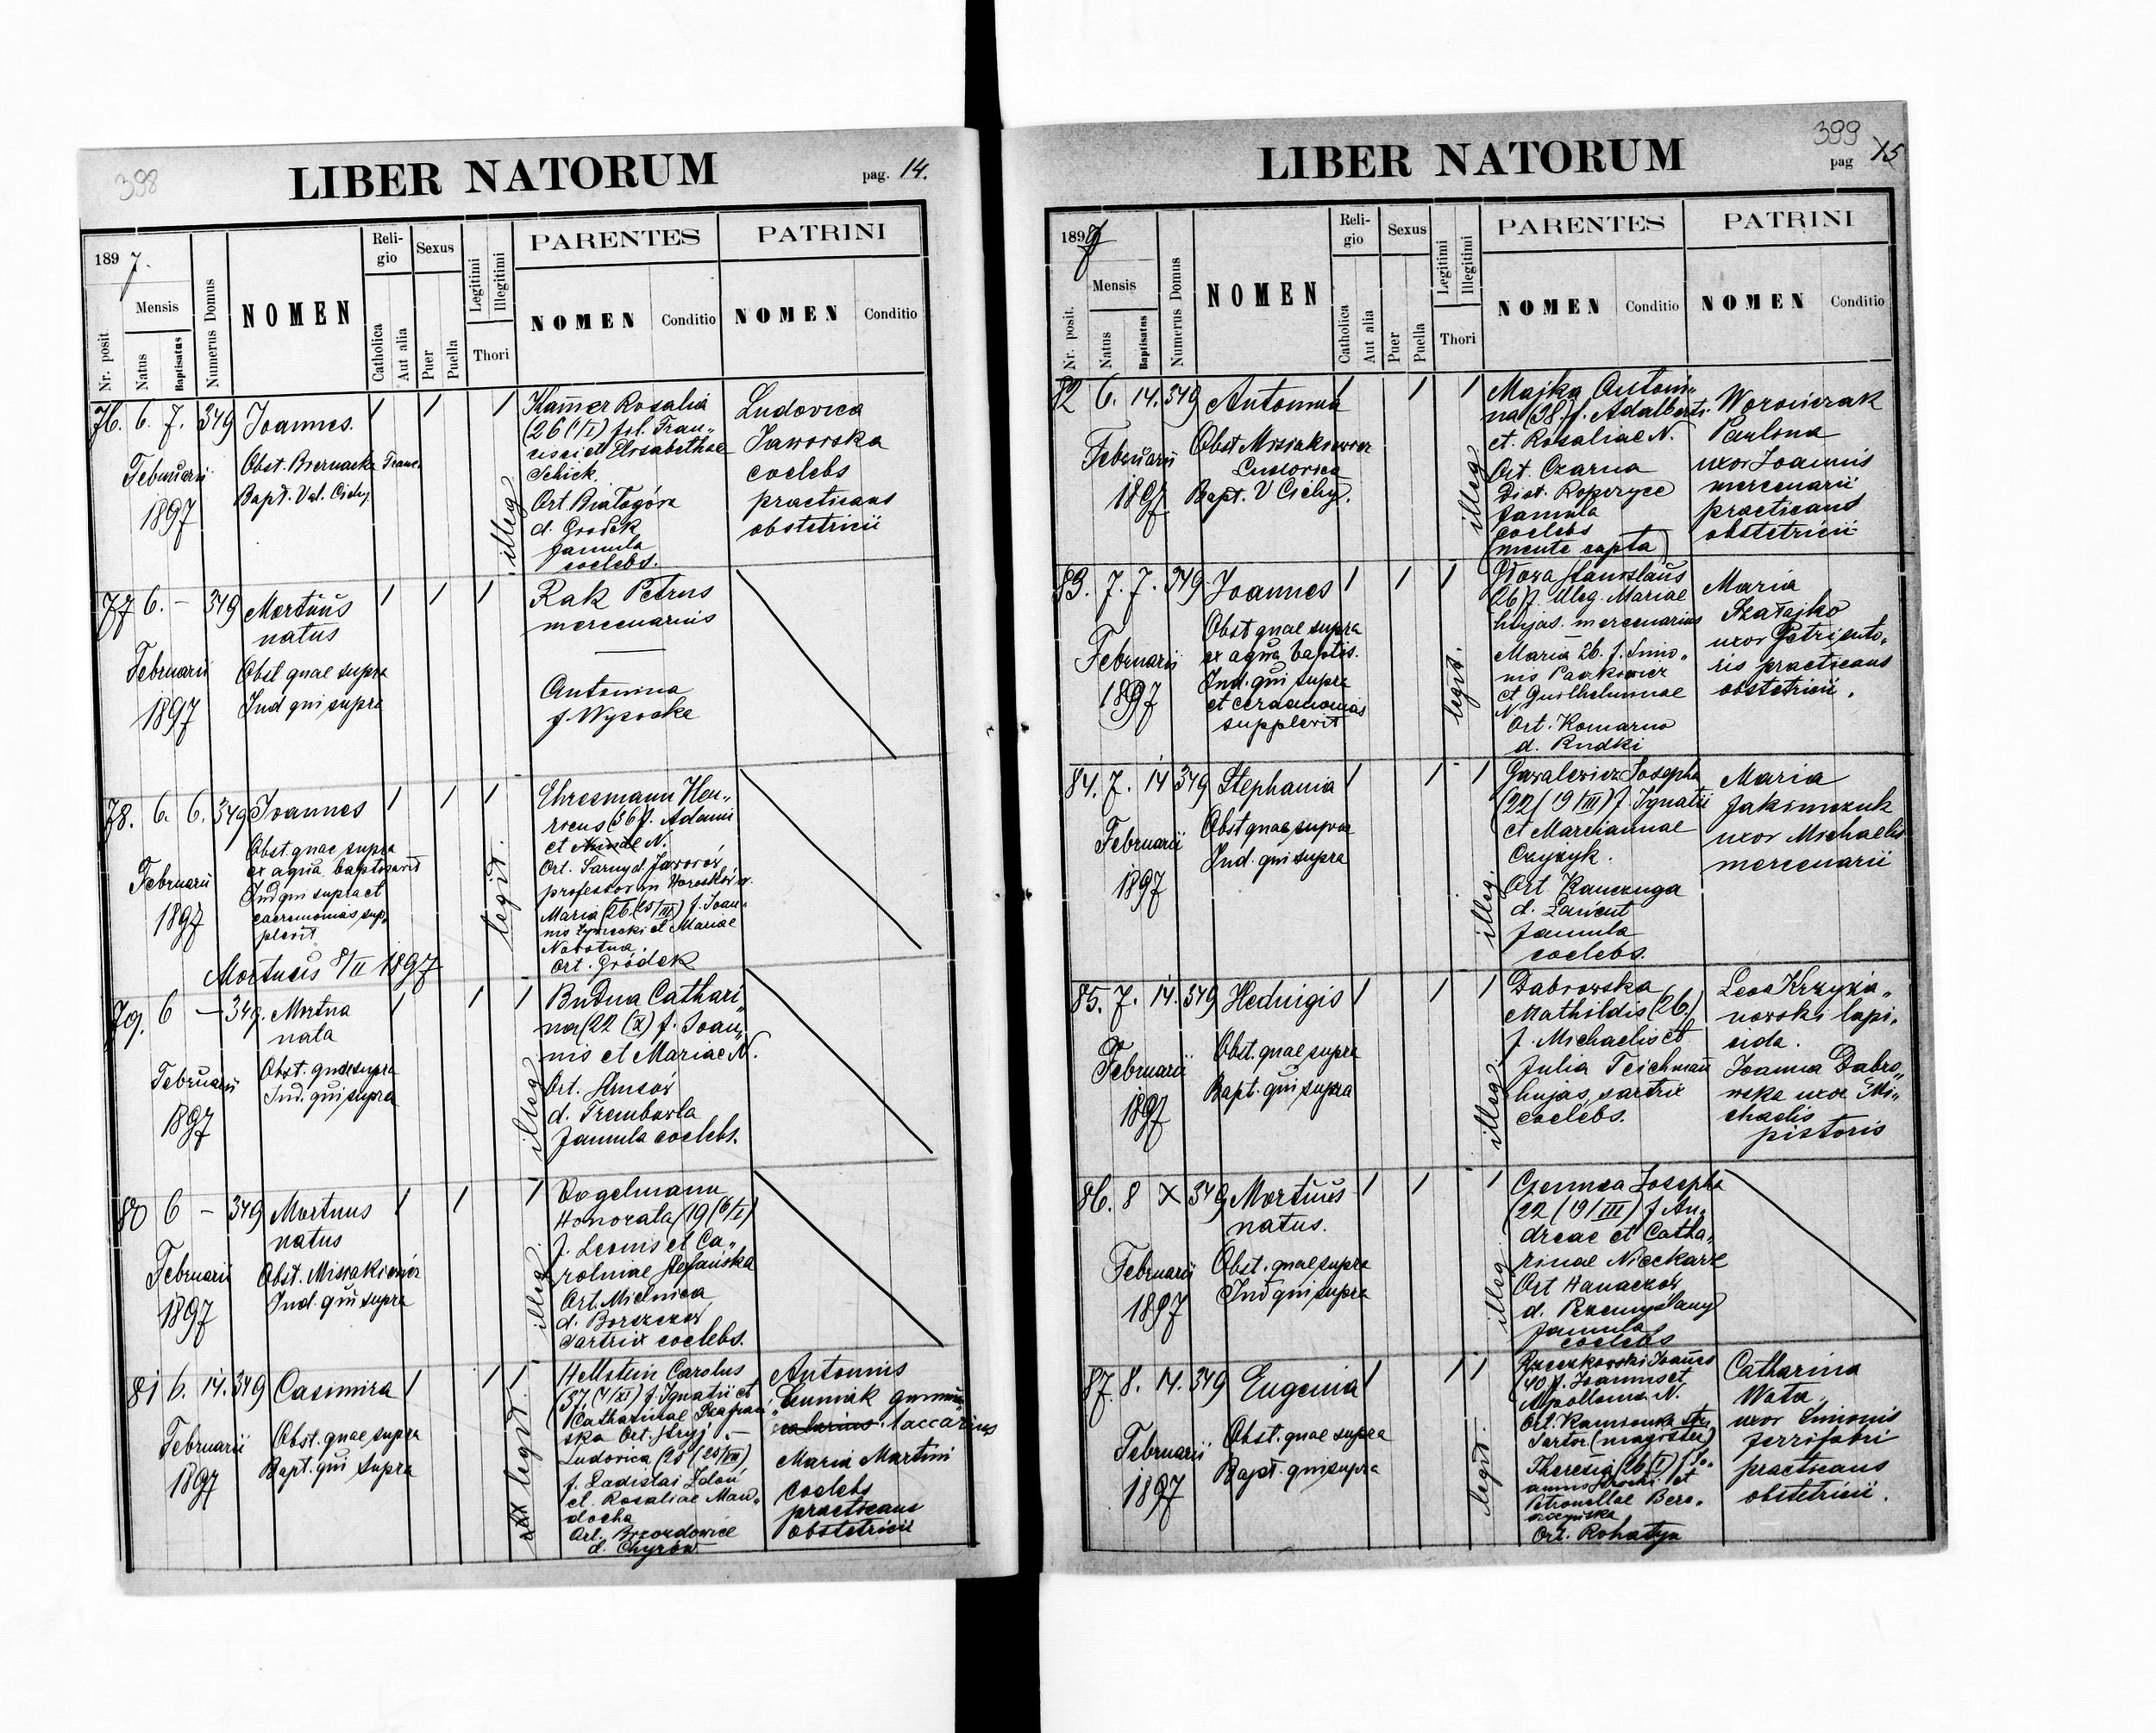 398
LIBER NATORUM
pag. 14.
189 7.
Nr. posit
Mensis
Natus
Baptisatus
Numerus Domus
NOMEN
Reli-
gio
Catholica
Aut alia
Sexus
Puer
Puella
Legitimi
Illegitimi
Thori
PARENTES
NOMEN
Conditio
PATRINI
NOMEN
Conditio
76. 6. 7. 349 Joannes. 1 1 1
Februarii
1897
Obst. Biernacka Franc.
Bapt. Val. Cichy
illeg
Kamer Rosalia
(26 (/I) fil. Fran„
cisci et Elisabethae
Schick.
Ort. Białogóra
d. Gródek
famula
coelebs.
Ludovica
Jaworska
coelebs
practicans
obstetricii
77 6. - 349 Mortuus 1 1 1
natus
Februarii
1897
Obst quae supra
Ind qui supra
Rak Petrus
mercenarius
Antonina
f. Wysocka
78. 6. 6. 349 Joannes 1 1 1
Obst. quae supra
ex aqua baptisavit
Ind qui supra et
caeremonias sup„
plevit
Februarii
1897
Mortuus 8/II 1897
legit.
Ehresmann Hen„
ricus (36 f. Adami
et N.
Ort. Sarny d. Jaworów
professor in
Maria (26 (25/III) f. Joan„
nis et Mariae
Nowotna.
Ort. Gródek
79. 6 - 349. Mortua 1 1 1
nata
Februarii
1897
Obst. quae supra
Ind. qui supra
illeg
Budna Cathari„
na (22 (X) f. Joan„
nis et Mariae N.
Ort.
d. Trembowla
famula coelebs.
80 6 - 349 Mortuus 1 1 1
natus
Februarii
1897
Obst. Misiakiewicz
Ind. qui supra
illeg.
Vogelmann
Honorata (19 (6/I)
f. Leonis et Ca„
rolinae Stefańska
Ort. Mielnica
d. Borszczów
Sartrix coelebs.
81 6. 14. 349 Casimira 1 1 1
Februarii
1897
Obst. quae supra
Bapt. qui supra
legit.
Hellstein Carolus
(37. (4/XI) f. Ignatii et
Catharinae
ska Ort. Stryj. -
Ludovica (25 (25/VIII)
f. Ladislai
et Rosaliae Man„
docha
Ort. Brzozdowice
d. Chyrów
Antonius
laccarius
Maria Martini
coelebs
practicans
obstetricii
399
LIBER NATORUM
pag 15
189 7
Nr. posit.
Mensis
Natus
Baptisatus
Numerus Domus
NOMEN
Reli-
gio
Catholica
Aut alia
Sexus
Puer
Puella
Legitimi
Illegitimi
Thori
PARENTES
NOMEN
Conditio
PATRINI
NOMEN
Conditio
82 6. 14. 349 Antonina 1 1 1
Februarii
1897
Obst Misiakiewicz
Ludovica
Bapt. V Cichy.
illeg
Majka Antoni„
na (38. f. Adalberti
et. Rosaliae N.
Ort. Czarna
Dist. Ropczyce
famula
coelebs
(mente capta)
Worończak
Paulina
uxor Joannis
mercenarii
practicans
obstetricii
83. 7. 7. 349 Joannes 1 1 1
Februarii
1897
Obst quae supra
ex aqua baptis.
Ind. qui supra
et ceraemonias
supplevit
legit.
Stanislaus
26 f. illeg. Mariae
hujas. mercenarius
Maria 26. f. Simo„
nis Paszkiewicz
et Guilhelminae
N.
Ort. Komarno
d. Rudki
Maria
Szatajko
uxor Petri suto„
ris practicans
obstetricii.
84. 7. 14 349 Stephania 1 1 1
Februarii
1897
Obst quae supra
Ind. qui supra
illeg.
Gawalewicz Josepha
(22 (19/III) f. Ignatii
et Mariannae
Czyżyk.
Ort Kańczuga
d. Łańcut
famula
coelebs.
Maria
Jakimczuk
uxor Michaelis
mercenarii
85. 7. 14. 349 Hedvigis 1 1 1
Februarii
1897
Obst. quae supra
Bapt. qui supra
illeg.
Dabrowska
Mathildis (26.)
f. Michaelis et
Julia Teichman
hujas, sartrix
coelebs.
Leon Krzyża„
nowski lapi„
cida.
Joanna Dabro„
wska uxor Mi„
chaelis
pistoris
86. 8 X 349 Mortuus 1 1 1
natus.
Februarii
1897
Obst. quae supra
Ind qui supra
illeg.
Josepha
(22 (19/III) f An„
dreae et Catha„
rinae Nieckarz
Ort Hanaczów
d. Przemyslany
famula
coelebs
87. 8. 14. 349 Eugenia 1 1 1
Februarii
1897
Obst. quae supra
Bapt. qui supra
legit.
Rzeczkowski Joannes
(40 f. Joannis et
Apolloniae N.
Ort. Kamionka Stru.
Sartor (magister)
Theresia (26 (I) f Jo„
annis et
Petronellae Bere„
Ort. Rohatyn
Catharina
Wata
uxor Simonis
ferrifabri
practicans
obstetricii.